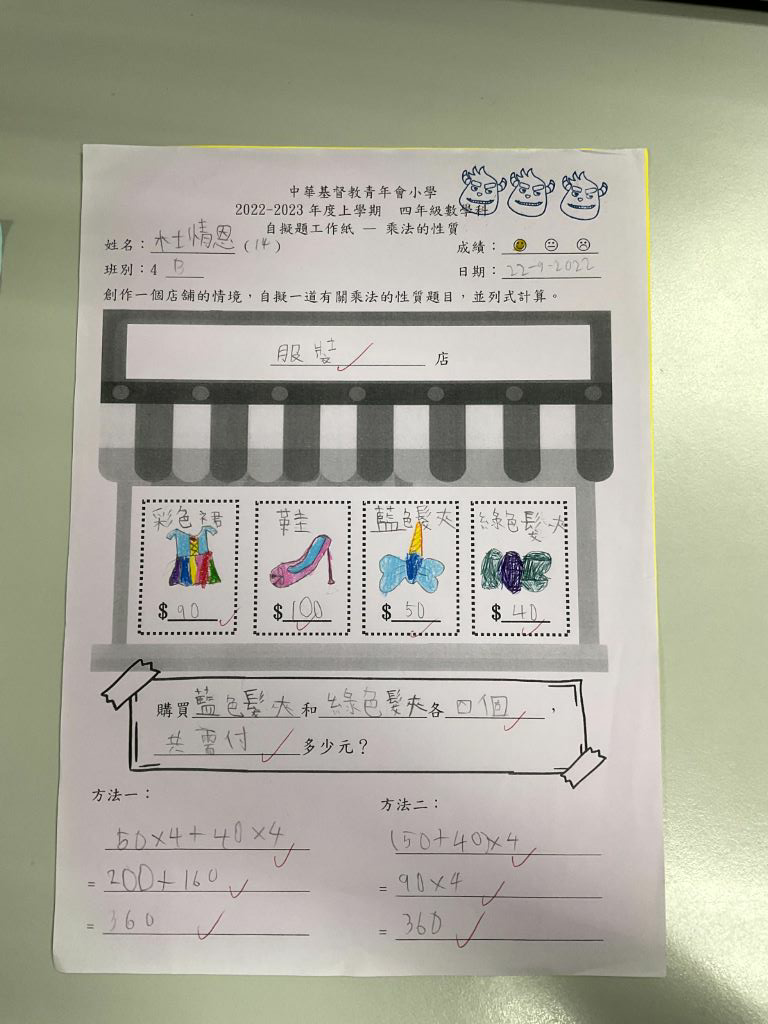 中華基督教青年會小學
2022-2023 年度上學期 四年級數學科
自擬題工作紙 — 乘法的性質
姓名：杜情恩 (14) 成績：
班別：4 B 日期：22-9-2022
創作一個店舖的情境，自擬一道有關乘法的性質題目，並列式計算。
服裝 店
彩色裙 鞋 藍色髮夾 綠色髮夾
$ 90 $ 100 $ 50 $ 40
購買藍色髮夾和綠色髮夾各四個，
共需付多少元？
方法一： 方法二：
50×4+40×4 (50+40)×4
= 200+160 = 90×4
= 360 = 360